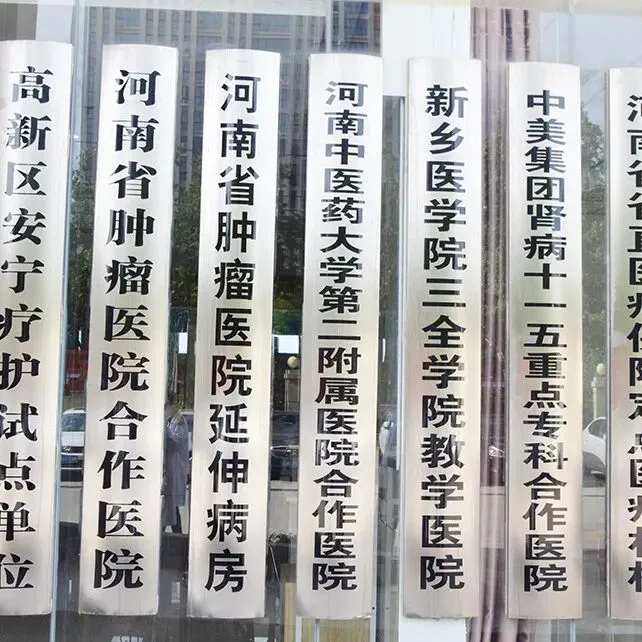 高新区安宁疗护试点单位
河南省肿瘤医院合作医院
河南省肿瘤医院延伸病房
河南中医药大学第二附属医院合作医院
新乡医学院三全学院教学医院
中美集团肾病十一五重点专科合作医院
河南省省直医疗保险定点医疗机构